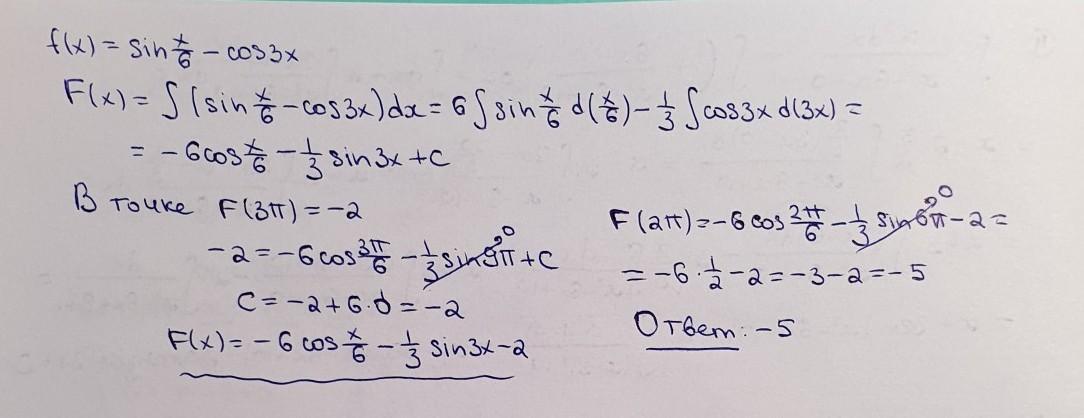 f(x) = sin x/6 − cos3x
F(x) = ∫(sin x/6 − cos3x)dx = 6∫sin x/6 d(x/6) − 1/3 ∫cos3x d(3x) =
= −6cos x/6 − 1/3 sin3x + C
В точке F(3π) = −2
−2 = −6cos 3π/6 − 1/3 sin9π + C
0
C = −2+6·0 = −2
F(x) = −6 cos x/6 − 1/3 sin3x − 2
F(2π) = −6 cos 2π/6 − 1/3 sin6π − 2 =
0
= −6 · 1/2 − 2 = −3 − 2 = −5
Ответ: −5